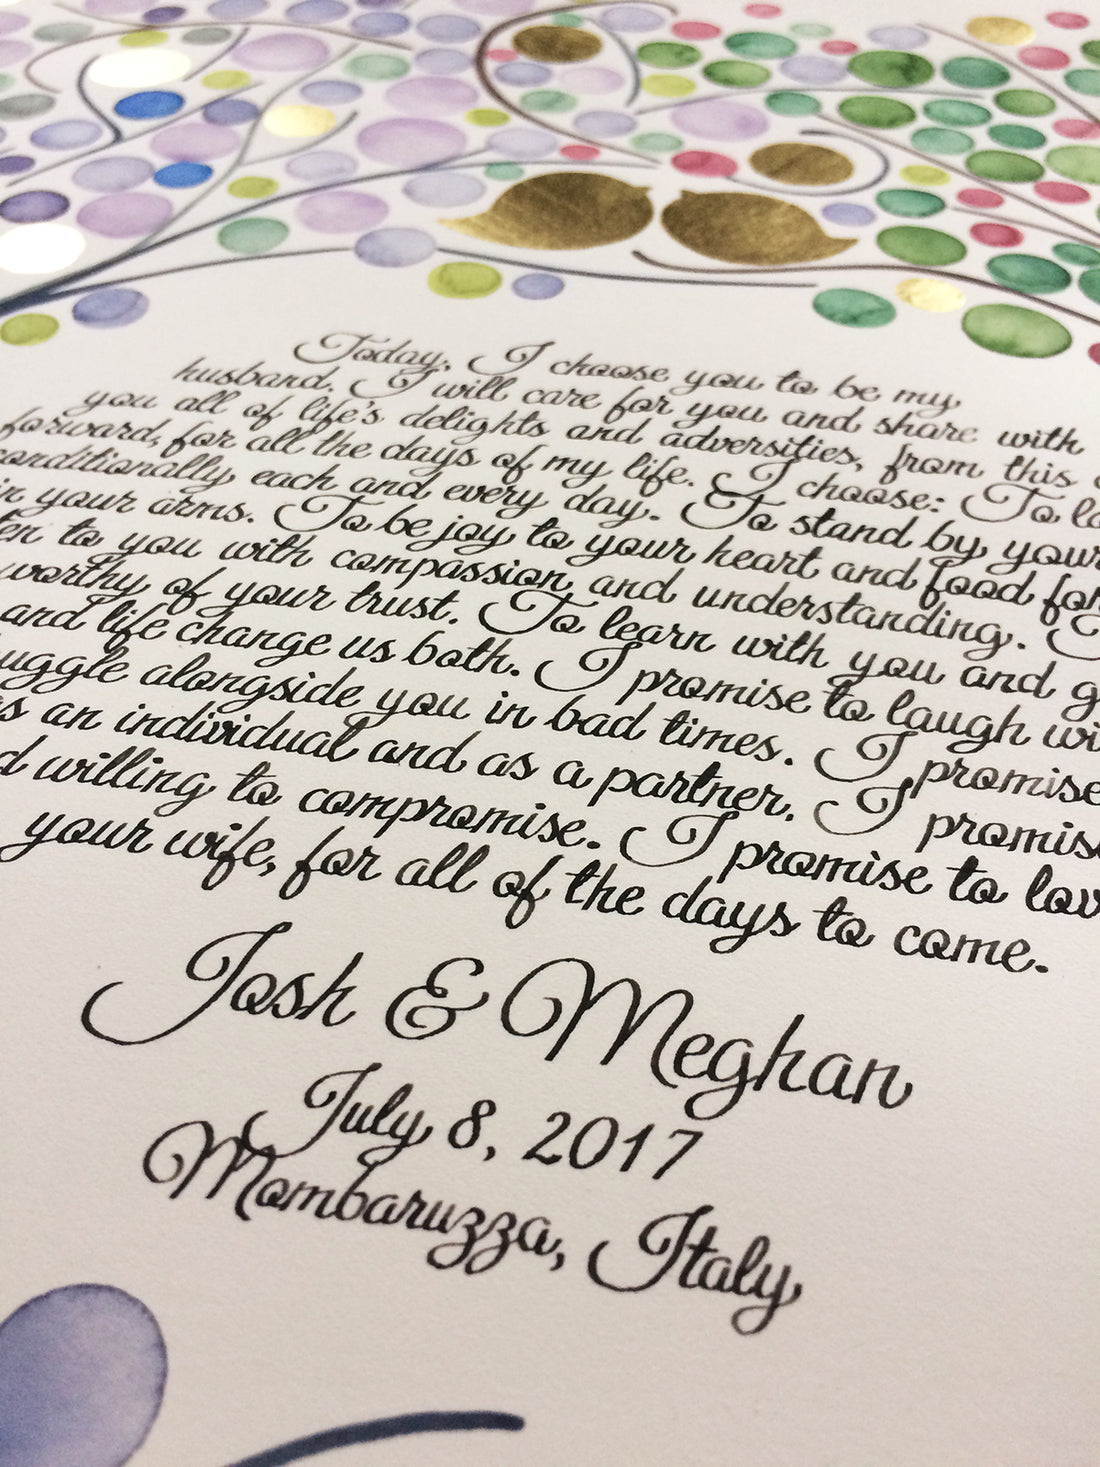 Today, I choose you to be my
husband. I will care for you and share with
you all of life's delights and adversities, from this
forward, for all the days of my life. I choose: To lo
conditionally each and every day. To stand by your
in your arms. To be joy to your heart and food for
ten to you with compassion and understanding.
worthy of your trust. To learn with you and g
and life change us both. I promise to laugh wi
uggle alongside you in bad times. I promise
s an individual and as a partner. I promis
d willing to compromise. I promise to lov
your wife, for all of the days to come.
Josh & Meghan
July 8, 2017
Mombaruzza, Italy